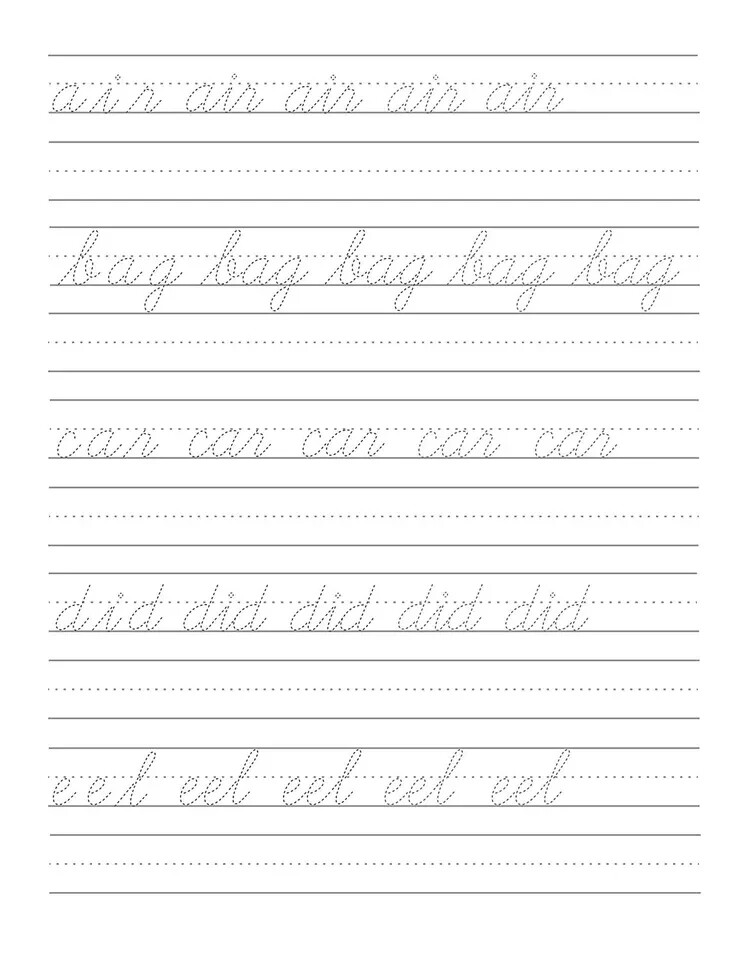 air air air air air
bag bag bag bag bag
car car car car car
did did did did did
eel eel eel eel eel